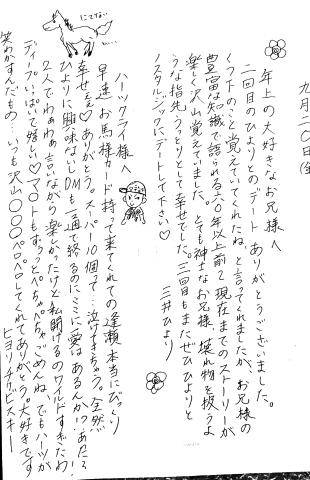 九月二〇日(金
年上の大好きなお兄様へ
二回目のひよりとのデート ありがとうございました。
くつ下のこと覚えていてくれたね、と言ってくれましたが、お兄様の
豊富な知識で語られる六〇年以上前と現在までのストーリーが
楽しく沢山覚えていました。とても紳士なお兄様、壊れ物を扱うよ
うな指先、うっとりとして幸せでした。三回目もまたぜひひよりと
ノスタルジックにデートして下さい♡
三井ひより
ハーックライ様へ
早速お馬様カード持って来てくれての逢瀬本当にびっくり
幸せ♡ありがとう。スーパー10個って…泣けちゃう。全然
ひよりに興味ないしDMも一通で終るのにここに愛はあるんか!?あた?
2人でわぁわぁ言いながら楽しかったけど私開けるのワイルドすぎたわ!
ディープいっぱいで嬉しい♡マ〇トもずっとぺちゃぺちゃごめんね、でもハーツが
笑わかすんだもの…いつも沢山〇〇〇ペロペロしてくれてありがとう。大好きです
ヒヨリチャビスキー
にてない…